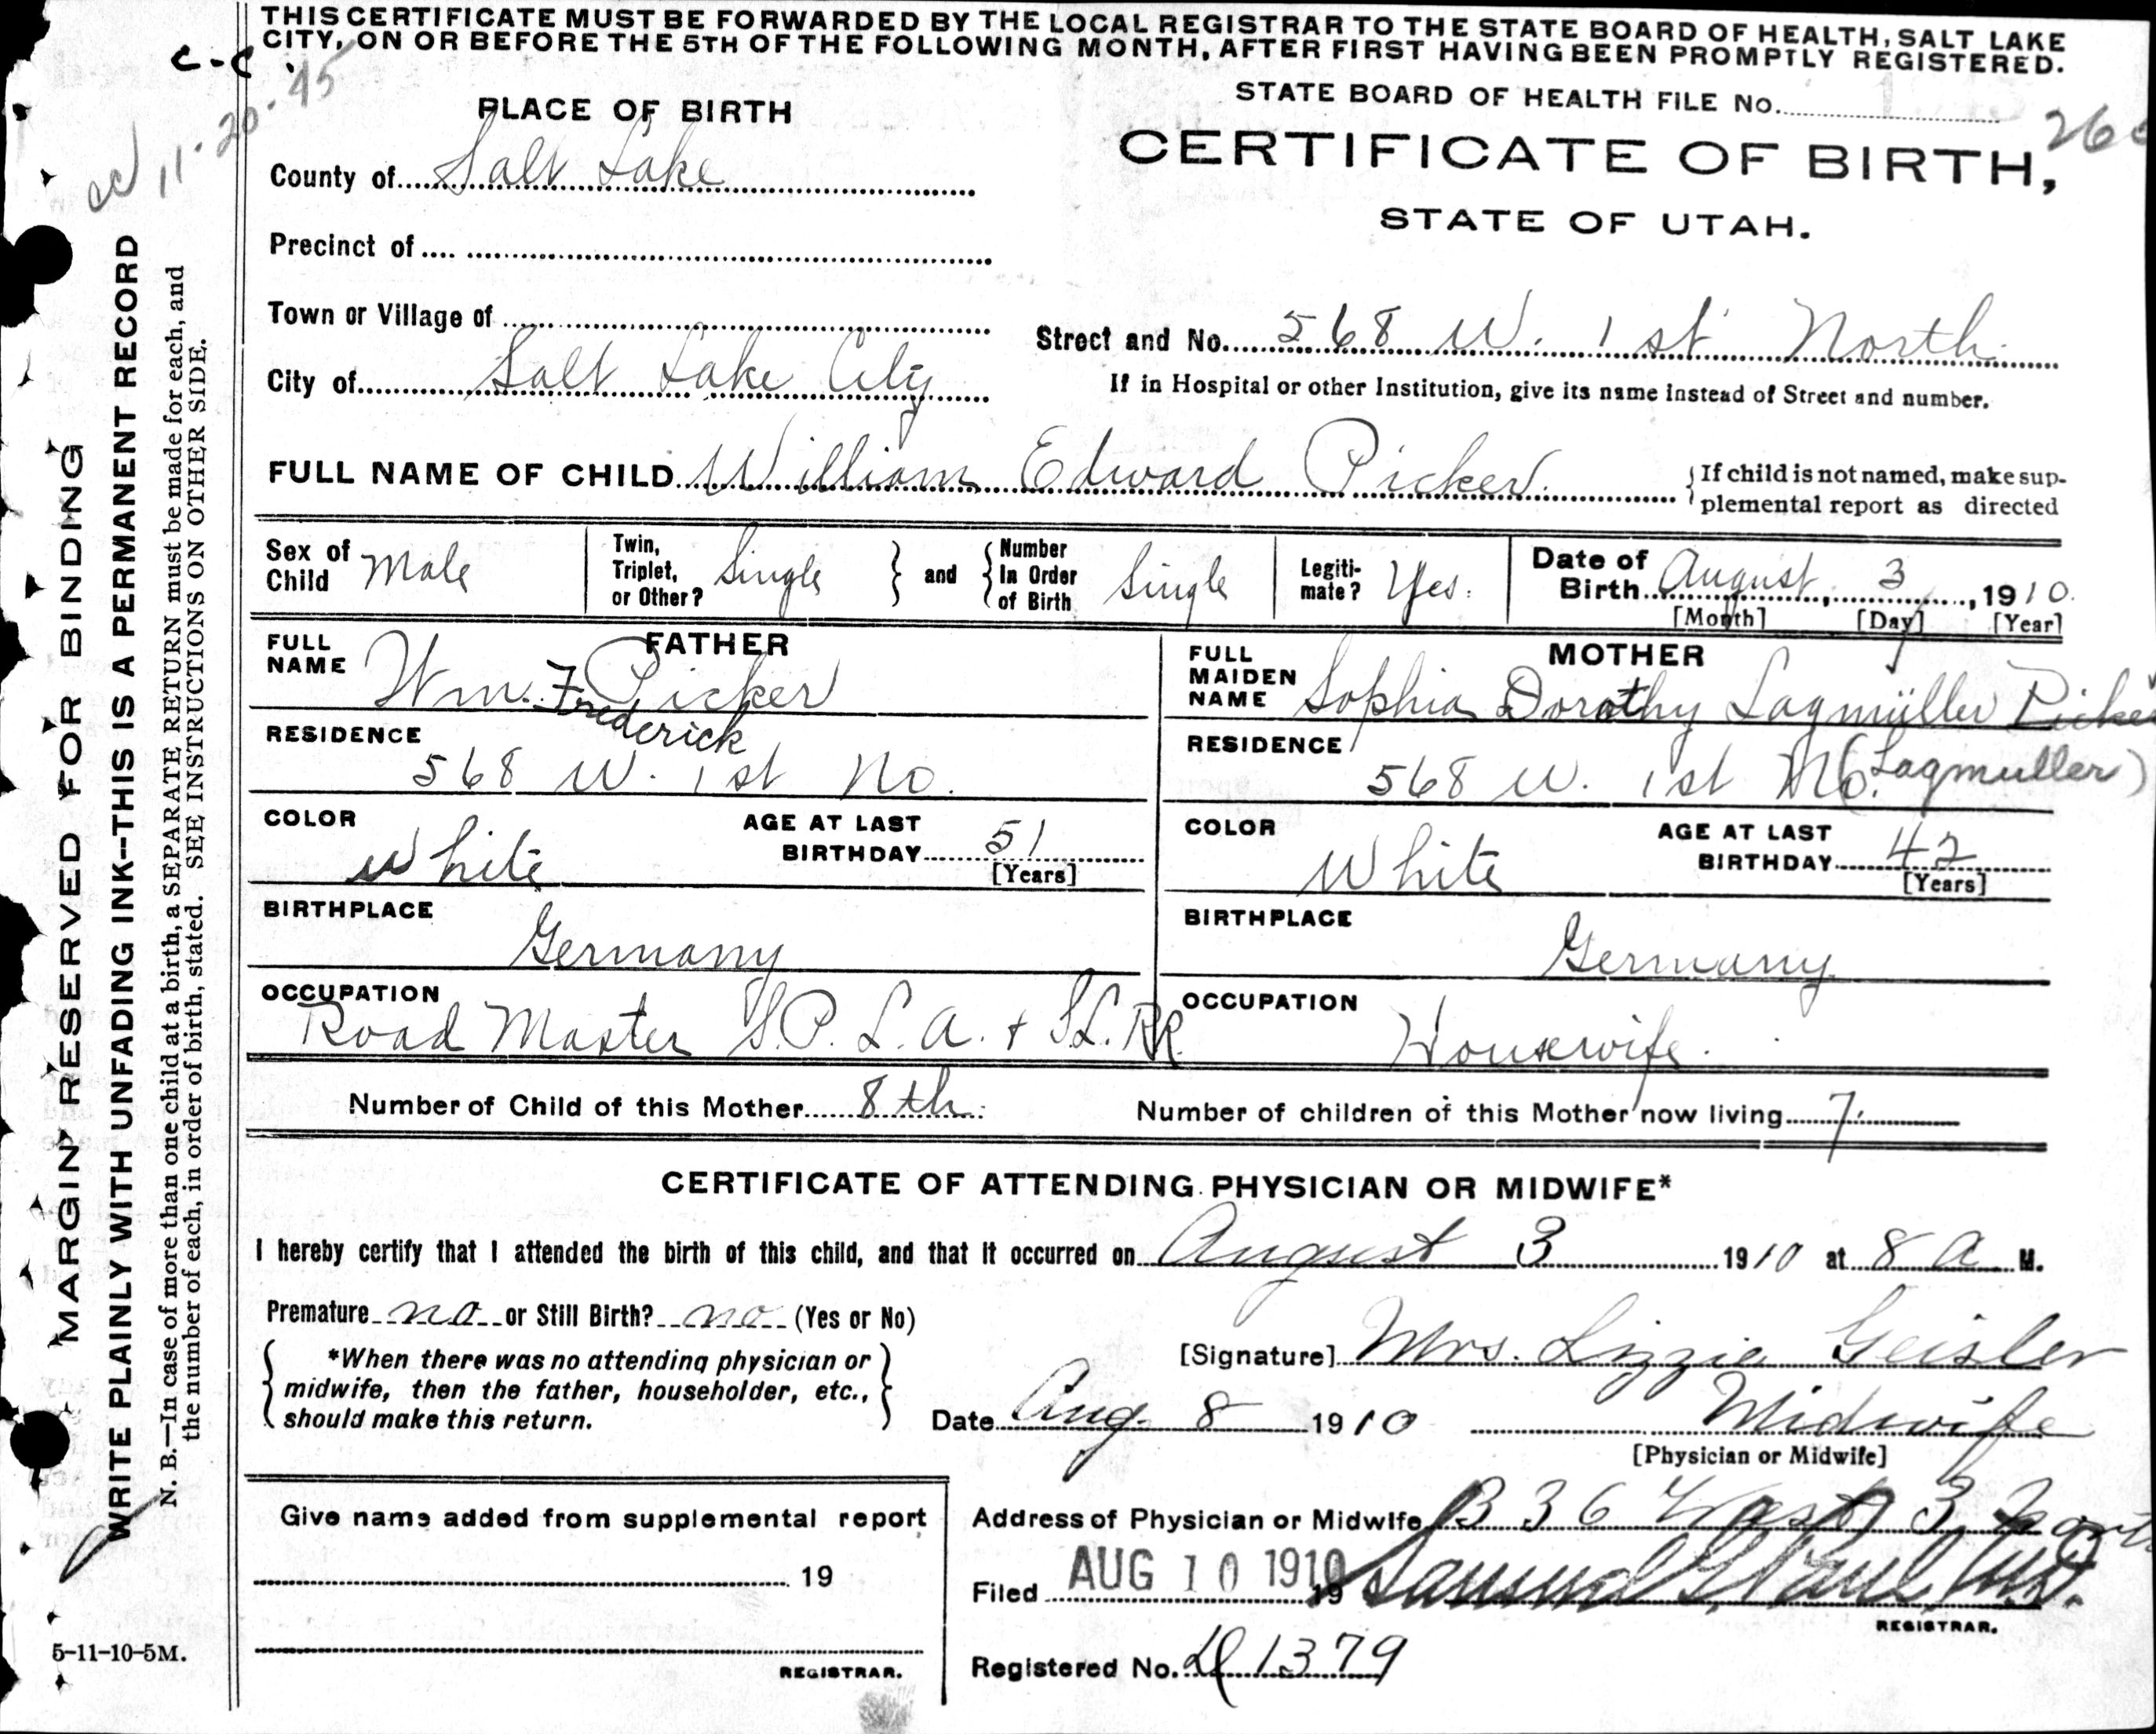 THIS CERTIFICATE MUST BE FORWARDED BY THE LOCAL REGISTRAR TO THE STATE BOARD OF HEALTH, SALT LAKE
CITY, ON OR BEFORE THE 5TH OF THE FOLLOWING MONTH, AFTER FIRST HAVING BEEN PROMPTLY REGISTERED.
c-c
11-20-45
STATE BOARD OF HEALTH FILE No.
26
PLACE OF BIRTH
CERTIFICATE OF BIRTH,
STATE OF UTAH.
County of Salt Lake
Precinct of
Town or Village of
Street and No. 568 W. 1st North
City of Salt Lake City
If in Hospital or other Institution, give its name instead of Street and number.
FULL NAME OF CHILD William Edward Picker.
If child is not named, make sup-
plemental report as directed
Sex of Child Male
Twin, Triplet, or Other? Single and Number In Order of Birth Single
Legiti-mate? Yes.
Date of Birth August, 3, 1910.
[Month] [Day] [Year]
FATHER
FULL NAME Wm. F Picker
Frederick
RESIDENCE
568 W. 1st No.
COLOR White
AGE AT LAST BIRTHDAY 51
[Years]
BIRTHPLACE
Germany
OCCUPATION
Road Master S.P.L.A. + S.L.RR.
MOTHER
FULL MAIDEN NAME Sophia Dorothy Lagmüller Picker
(Lagmuller)
RESIDENCE
568 W. 1st No.
COLOR White
AGE AT LAST BIRTHDAY 42
[Years]
BIRTHPLACE
Germany
OCCUPATION
Housewife.
Number of Child of this Mother 8th. Number of children of this Mother now living 7.
CERTIFICATE OF ATTENDING PHYSICIAN OR MIDWIFE*
I hereby certify that I attended the birth of this child, and that it occurred on August 3 1910 at 8 a M.
Premature no or Still Birth? no (Yes or No)
*When there was no attending physician or
midwife, then the father, householder, etc.,
should make this return.
[Signature] Mrs. Lizzie Geisler
Date Aug. 8 1910 Midwife
[Physician or Midwife]
Give name added from supplemental report
19
REGISTRAR.
Address of Physician or Midwife 336 West 3 North
Filed AUG 10 1910 19 Samuel G. Paul, M.D.
REGISTRAR.
Registered No. 1379
MARGIN RESERVED FOR BINDING
WRITE PLAINLY WITH UNFADING INK--THIS IS A PERMANENT RECORD
N. B.—In case of more than one child at a birth, a SEPARATE RETURN must be made for each, and
the number of each, in order of birth, stated. SEE INSTRUCTIONS ON OTHER SIDE.
5-11-10-5M.